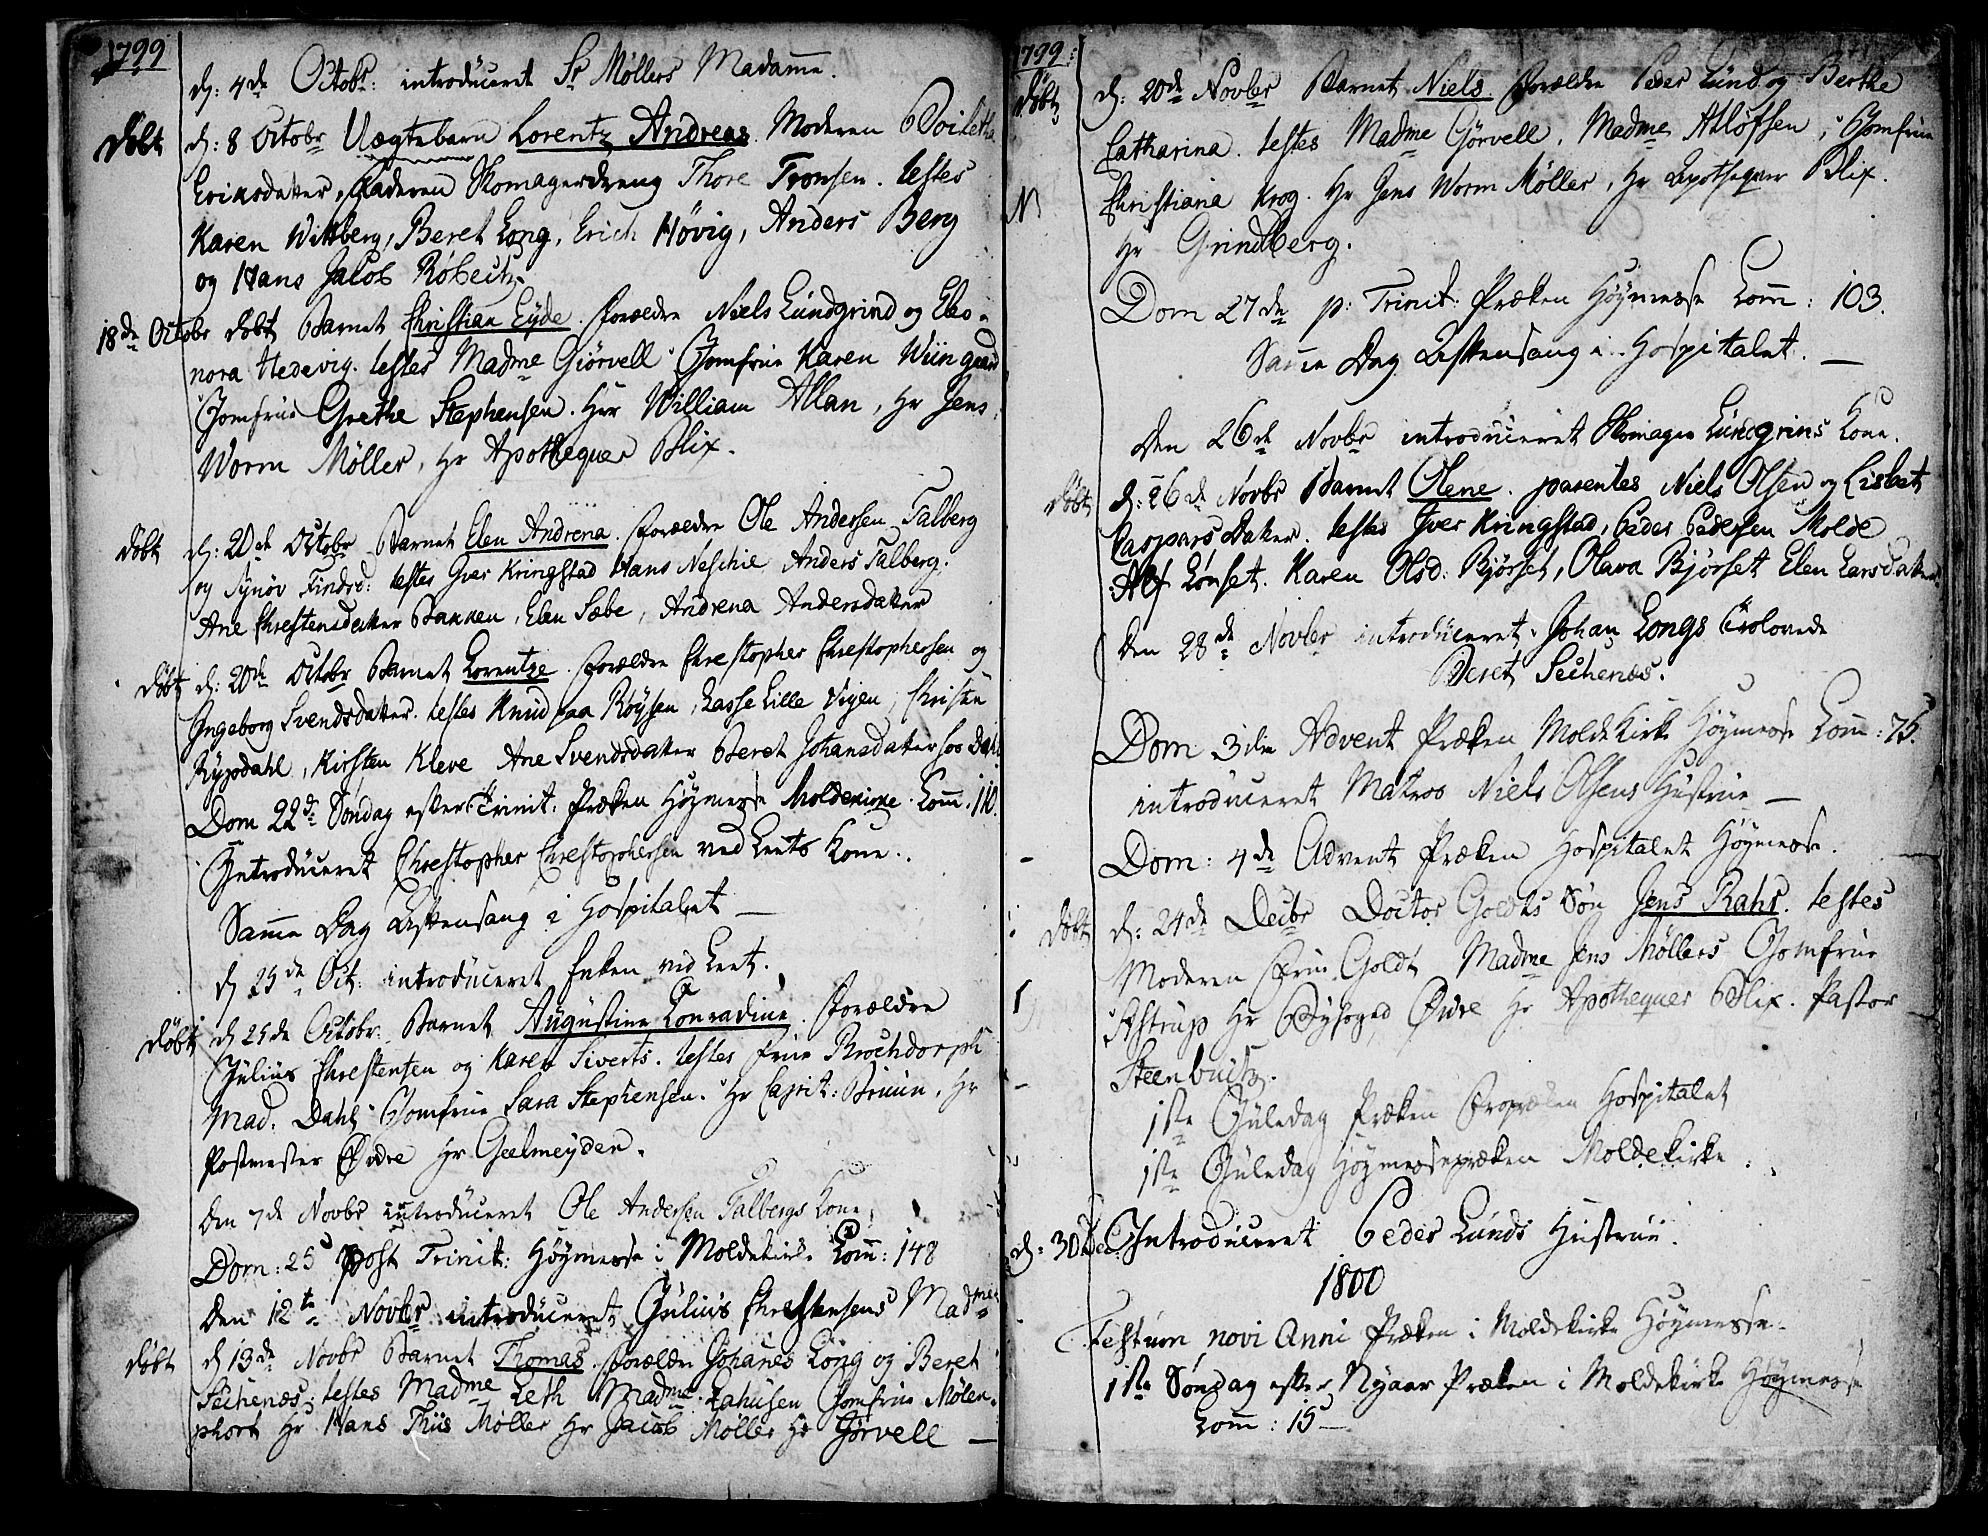 1799
d: 4de Octobr: introduceret Sr Møllers Madame.
døbt d: 8 Octobr Uægtebarn Lorentz Andreas. Moderen
Ericsdatter, Faderen Skomagerdreng Thore Tronsen. testes
Karen Wittberg, Beret Long, Erich Høvig, Anders Berg
og Hans Jacob Røbech.
18de Octobr døbt Barnet Christian Eyde. Forældre Niels Lundgrind og Eleo-
nora Hedevig. testes Madme Giørvell Jomfrue Karen Wiingaard
Jomfrue Grethe Stephensen. Hr William Allan, Hr Jens
Worm Møller, Hr Apotheqver Blix.
døbt d: 20de Octobr Barnet Elen Andrena. Forældre Ole Andersen Talberg
og Synøv Findsd: testes Iver Kringstad Hans Neschie Anders Talberg.
Ane Christensdatter Bakken, Elen Sæbe, Andrena Andersdatter
døbt d: 20de Octobr Barnet Lorentze. Forældre Christopher Christophersen og
Ingeborg Svendsdatter. testes Knud paa Røysen, Lasse Lille Vigen, Christen
Rypdahl, Kirsten Kleve Ane Svendsdatter Beret Johansdatter hos
Dom 22de Søndag efter Trinit: Præken Høymesse Moldekirke. Com: 110.
Introduceret Christopher Christophersen ved Leets Kone.
Samme Dag Aftensang i Hospitalet —
d 25de Oct: introduceret Enken ved Leet.
døbt d 25de Octobr: Barnet Augustine Conradine. Forældre
Julius Christensen og Karen Siverts. testes Frue Brochdorph
Mad. Dahl Jomfrue Sara Stephensen. Hr Capit: Bruun, Hr
Postmester Øvre Hr Geelmeyden.
Den 7de Novbr introduceret Ole Andersen Talbergs Kone.
Dom: 25 post Trinit: Høymesse i Moldekirke Com: 148
Den 12te Novbr introduceret Julius Christensens Madme
døbt d 13de Novbr Barnet Thomas. Forældre Johannes Long og Beret
Sechenæs. testes Madme Leth Madme Lahusen Jomfrue Mølen-
phort Hr Hans Thiis Møller Hr Jacob Møller Hr Gørvell —
1799:
døbt d: 20de Novbr Barnet Niels. Forældre Peder Lund og Berthe
Catharina. testes Madme Gørvell, Madme Atløfsen, Jomfrue
Christiana Krog. Hr Jens Worm Møller, Hr Apotheqver Blix.
Hr Grindberg.
Dom 27de p: Trinit: Præken Høymesse Com: 103.
Samme Dag Aftensang i Hospitalet. —
Den 26de Novbr introduceret Skomager Lundgrins Kone.
døbt d: 26de Novbr Barnet Olene. parentes Niels Olsen og Lisbet
Caspars Datter. testes Iver Kringstad, Peder Pedersen Molde
Alf Lønset. Karen Olsd: Bjørset, Olava Bjørset Elen Larsdatter
Den 28de Novbr introduceret Johan Longs Trolovede
Beret Sechenæs.
Dom 3die Advent Præken Molde Kirke Høymesse Com: 75.
introduceret Matros Niels Olsens Hustrue —
Dom: 4de Advent Præken Hospitalet Høymesse.
døbt d: 24de Decbr Doctor Goldts Søn Jens Rahr. testes
Moderen Frue Goldt Madme Jens Møllers Jomfrue
Astrup Hr Byfoged Øvre Hr Apotheqver Blix. Pastor
Steenbuch.
1ste Juledag Præken Froprælen Hospitalet
1ste Juledag Høymessepræken Moldekirke.
d: 30 Dec: Introduceret Peder Lunds Hustrue.
1800
Festum novi Anni Præken i Moldekirke Høymesse.
1ste Søndag efter Nyaar Præken i Moldekirke Høymesse
Com: 15 —